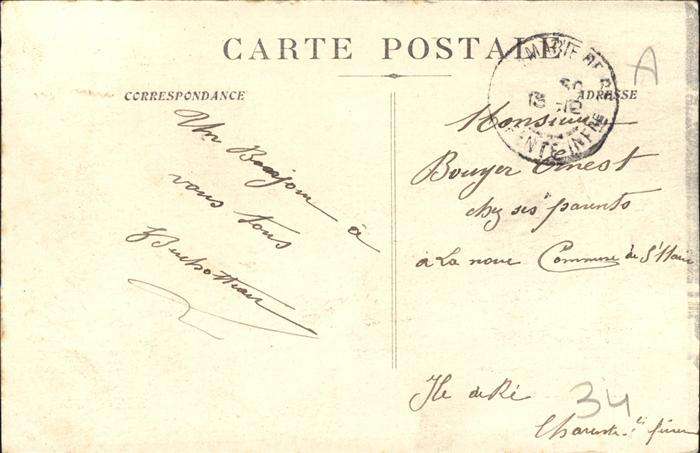 CARTE POSTALE
CORRESPONDANCE
ADRESSE
Un Bonjour à
vous tous
Monsieur
Bouyer Ernest
chez ses parents
à La noue Commune de Ste Marie
Ile de Ré
Charente-Inférieure
A
34